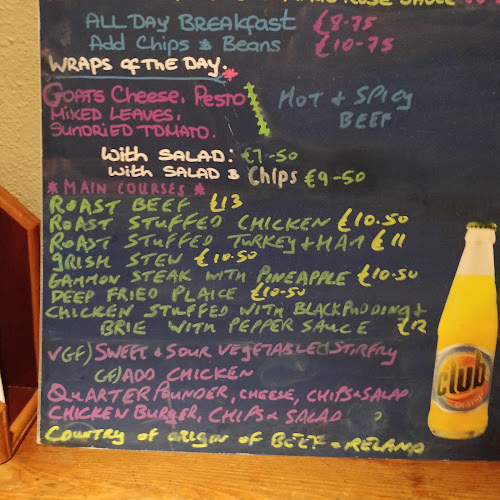 ROSE SAUCE
ALL DAY BREAKFAST £8-75
Add Chips & Beans £10-75
WRAPS of the DAY.*
GOATS Cheese, PESTO
MIXED LEAVES,
SUNDRIED TOMATO.
HOT & SPICY
BEEF
With SALAD: €7-50
with SALAD & Chips €9-50
* MAIN COURSES *
ROAST BEEF £13
ROAST STUFFED CHICKEN £10.50
ROAST STUFFED TURKEY + HAM £11
IRISH STEW £10.50
GAMMON STEAK WITH PINEAPPLE £10.50
DEEP FRIED PLAICE £10.50
CHICKEN STUFFED WITH BLACKPUDDING +
BRIE WITH PEPPER SAUCE £12
VGF) SWEET & SOUR VEGETABLE STIRFRY
GF) ADD CHICKEN
QUARTER POUNDER, CHEESE, CHIPS & SALAD
CHICKEN BURGER, CHIPS & SALAD
COUNTRY OF ORIGIN OF BEEF - IRELAND
club
orange